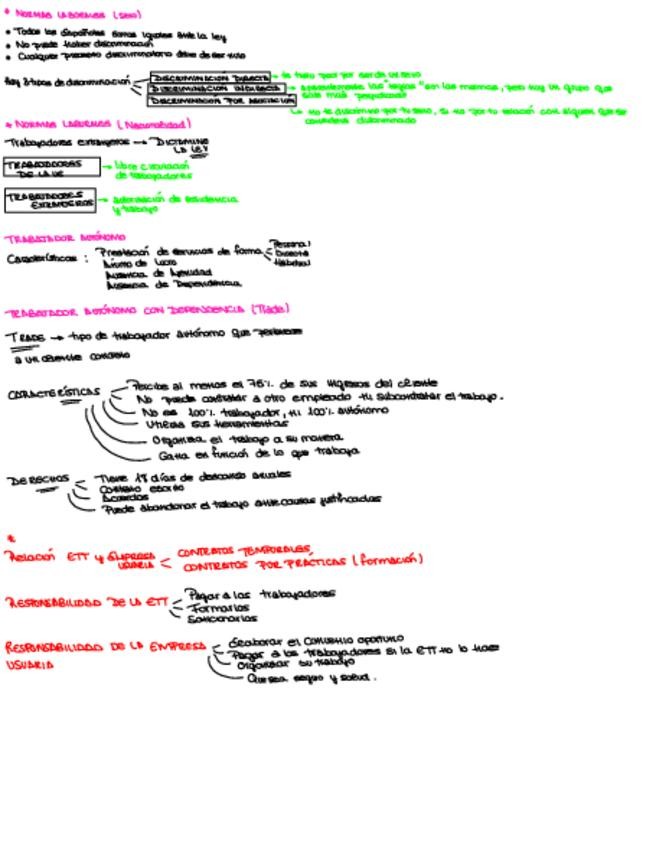 * NORMAS LABORALES (sexo)
• Todos los españoles somos iguales ante la ley
• No puede haber discriminación
• Cualquier precepto discriminatorio debe de ser nulo
Hay 3 tipos de discriminación
DISCRIMINACIÓN DIRECTA → te trato peor por ser de un sexo
DISCRIMINACIÓN INDIRECTA → aparentemente las "reglas" son las mismas, pero hay un grupo que sale más perjudicado
DISCRIMINACIÓN POR ASOCIACIÓN
↳ no te discrimino por tu sexo, si no por tu relación con alguien que se considera discriminado
* NORMAS LABORALES (Nacionalidad)
Trabajadores extranjeros → DICTAMINE LA LEY
TRABAJADORES DE LA UE → libre circulación de trabajadores
TRABAJADORES EXTRANJEROS → autorización de residencia y trabajo
TRABAJADOR AUTÓNOMO
Características : Prestación de servicios de forma
Personal
Directa
Habitual
Ánimo de Lucro
Ausencia de Ajenidad
Ausencia de Dependencia
TRABAJADOR AUTÓNOMO CON DEPENDENCIA (Trade)
TRADE → tipo de trabajador autónomo que pertenece
a un cliente concreto
CARACTERÍSTICAS
Percibe al menos el 75% de sus ingresos del cliente
No puede contratar a otro empleado ni subcontratar el trabajo.
No es 100% trabajador, ni 100% autónomo
Utiliza sus herramientas
Organiza el trabajo a su manera
Gana en función de lo que trabaja
DERECHOS
Tiene 18 días de descanso anuales
Contrato escrito
Acuerdos
Puede abandonar el trabajo ante causas justificadas
*
Relación ETT y EMPRESA USUARIA
CONTRATOS TEMPORALES,
CONTRATOS POR PRÁCTICAS (formación)
RESPONSABILIDAD DE LA ETT
Pagar a los trabajadores
Formarlos
Sancionarlos
RESPONSABILIDAD DE LA EMPRESA
USUARIA
Elaborar el convenio oportuno
Pagar a los trabajadores si la ETT no lo hace
Organizar su trabajo
Que sea seguro y salud.